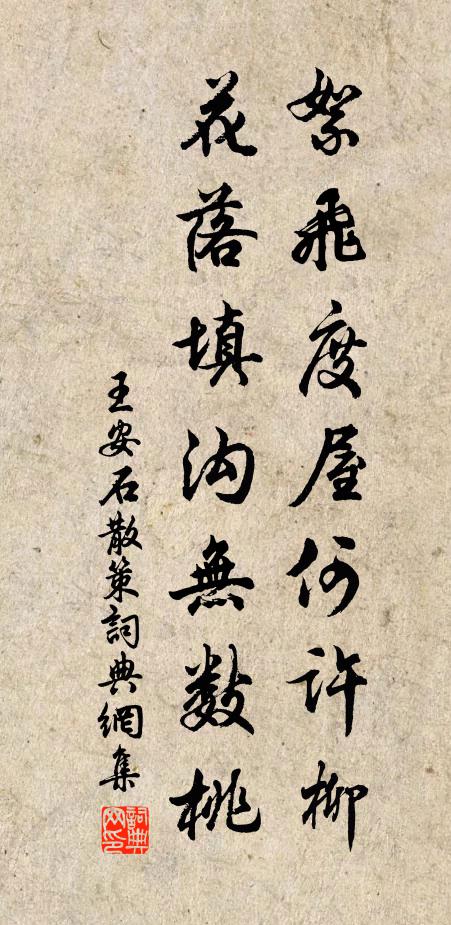 絮飛度屋何許柳
花落填沟無數桃
王安石散策詞典網集
詞典網印